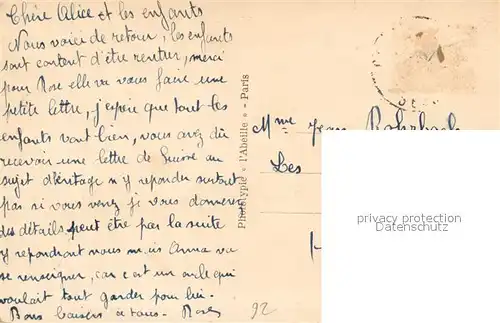 Chère Alice et les enfants
Nous voici de retour, les enfants
sont content d'être rentrer, merci
pour Rose elle va vous faire une
petite lettre, j'espère que tout les
enfants vont bien, vous avez dû
recevoir une lettre de Suisse au
sujet d'héritage n'y reponder surtout
pas si vous venez je vous donnerez
des détails, peut être par la suite
y repondront nous mais Anna va
se renseigner, car c'est un oncle qui
voulait tout garder pour lui.
Bons baisers a tous. Rose
92
Phototypie « l'Abeille » - Paris
Mme Jean Rohrbach
Les
privacy protection
VERAMA®